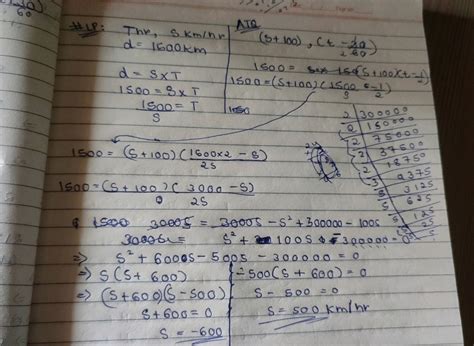 60
#18: Thr, s km/hr
d = 1500km
d = S×T
1500 = S×T
1500 = T
S
ATQ
(S+100), (t - 30
60)
1500 = (S+100)(t-1
1500 = (S+100)(1500 - 1)
S 2
1500 = (S+100)(1500×2 - S)
2S
1500 = (S+100)(3000 - S)
2S
3000S = 3000S - S² + 300000 - 100S
S² + 100S - 300000 = 0
⇒ S² + 600S - 500S - 300000 = 0
⇒ S(S+600) -500(S+600) = 0
⇒ (S+600)(S-500)
S - 500 = 0
S+600 = 0
S = 500 km/hr
S = -600
2 300000
2 150000
2 75000
2 37500
2 18750
3 9375
5 3125
5 625
5 125
5 25